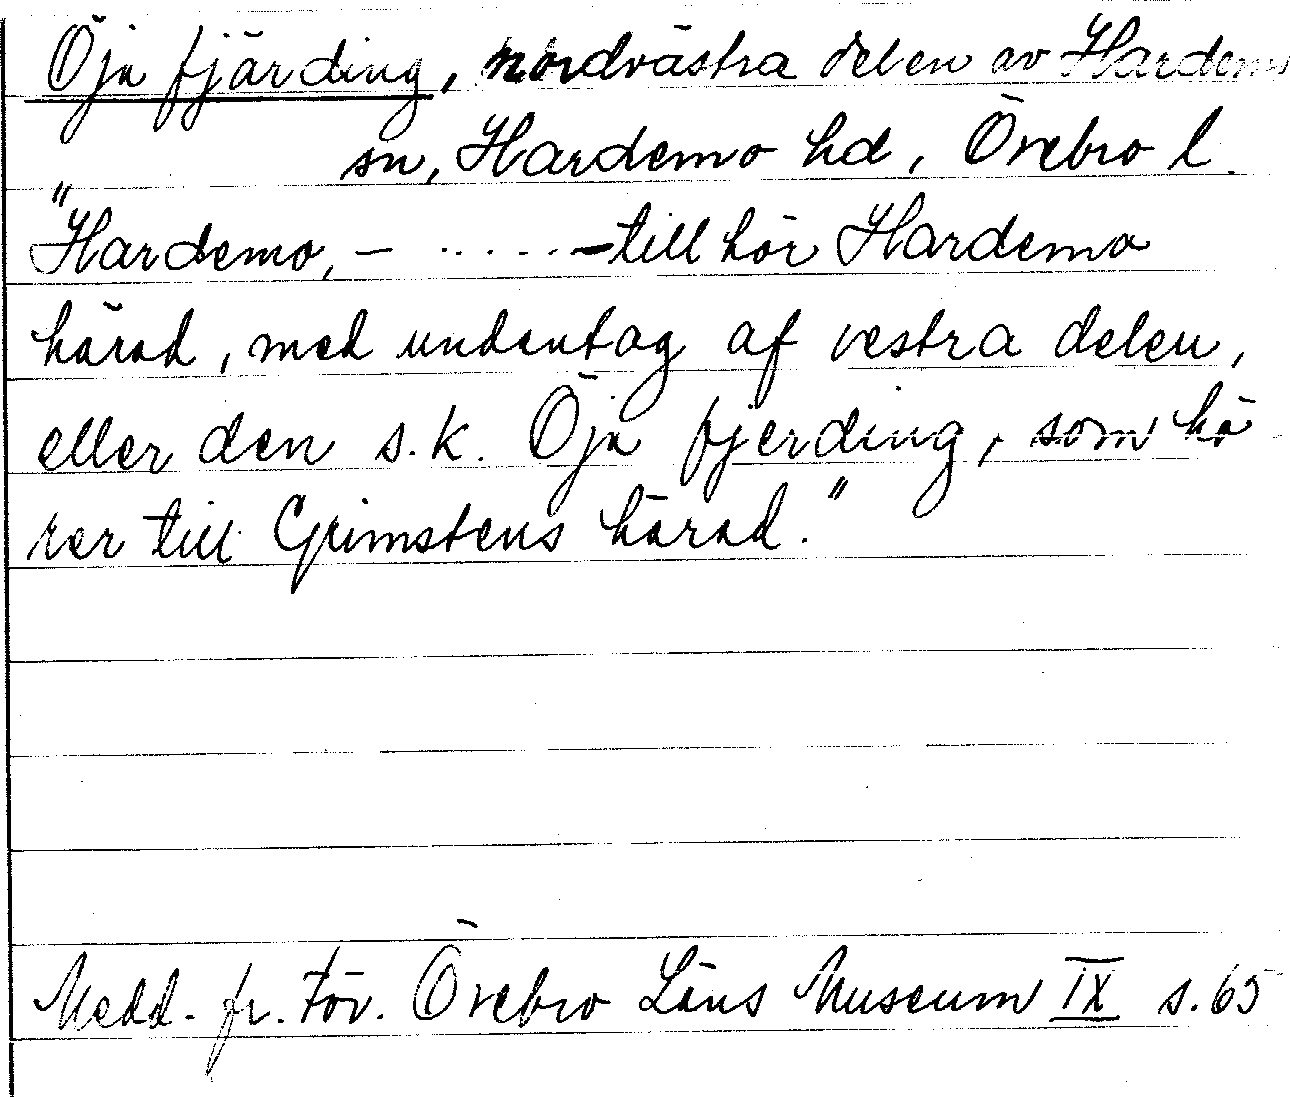 Öja fjärding, nordvästra delen av Hardemo
sn, Hardemo hd, Örebro l.
"Hardemo, – ..... – tillhör Hardemo
härad, med undantag af vestra delen,
eller den s.k. Öja fjerding, som hö
rer till Grimstens härad."
Medd. fr. För. Örebro Läns Museum IX s. 65